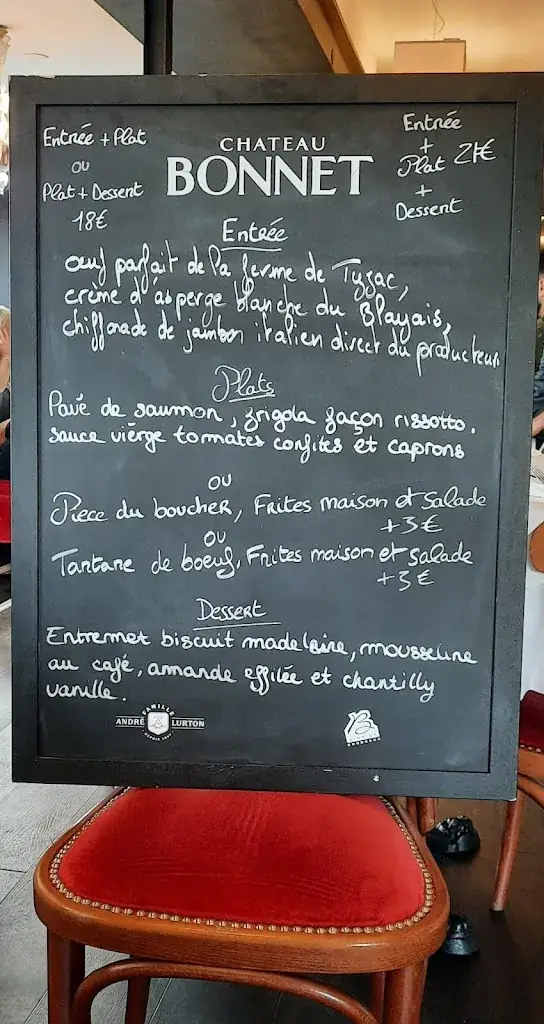 Entrée + Plat
ou
Plat + Dessert
18€
CHATEAU
BONNET
Entrée
+
Plat 21€
+
Dessert
Entrée
œuf parfait de la ferme de Tyzac,
crème d'asperge blanche du Blayais,
chiffonade de jambon italien direct du producteur.
Plats
Pavé de saumon, frigola façon rissotto.
sauce vierge tomates confites et caprons
ou
Piece du boucher, Frites maison et Salade
+3€
ou
Tartare de boeuf, Frites maison et salade
+3€
Dessert
Entremet biscuit madeleine, mousseline
au café, amande effilée et chantilly
vanille.
FAMILLE
ANDRÉ LURTON
B
BORDEAUX